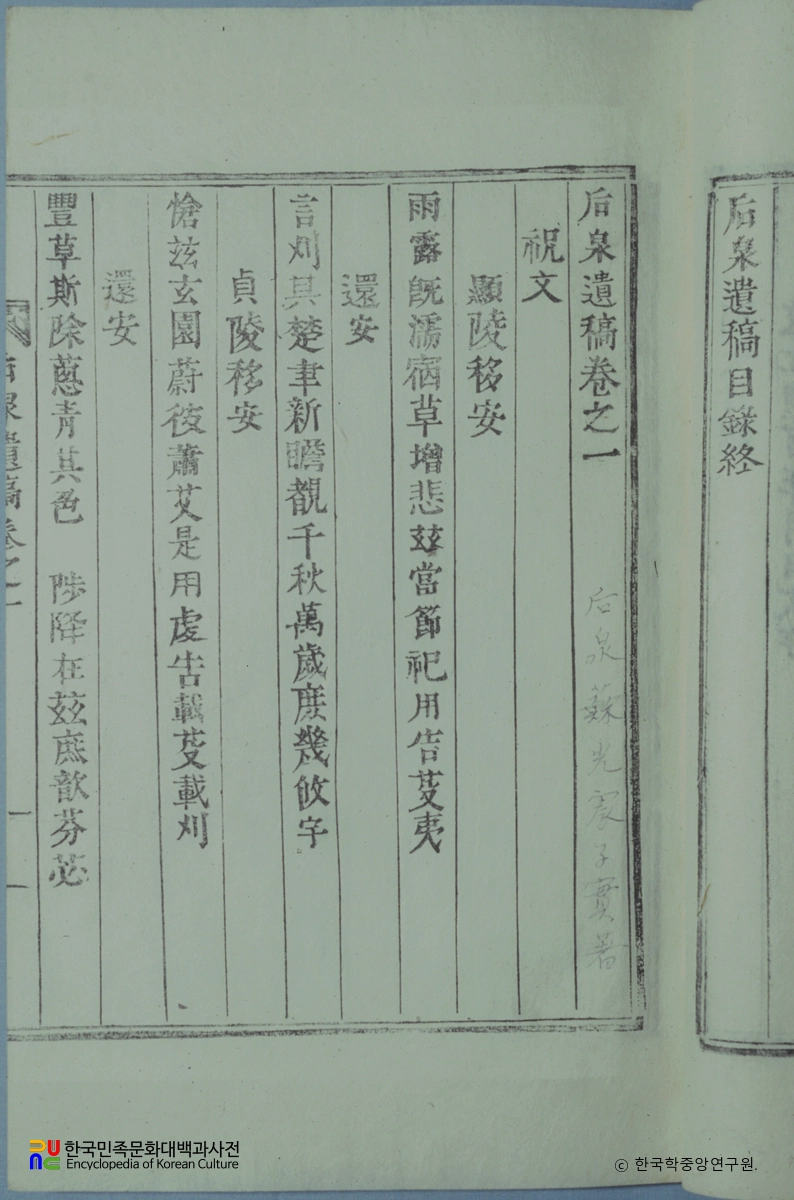 后泉遺稿目錄終
后泉遺稿卷之一
后泉蘇光震子實著
祝文
顯陵移安
雨露旣濡宿草增悲玆當節祀用告芟夷
還安
言刈其楚聿新瞻覩千秋萬歲庶幾攸芋
貞陵移安
愴玆玄園蔚彼蕭艾是用虔告載芟載刈
還安
豐草斯除蔥青其色 陟降在玆庶歆芬苾
后泉遺稿卷之一
一
한국민족문화대백과사전
Encyclopedia of Korean Culture
ⓒ 한국학중앙연구원.